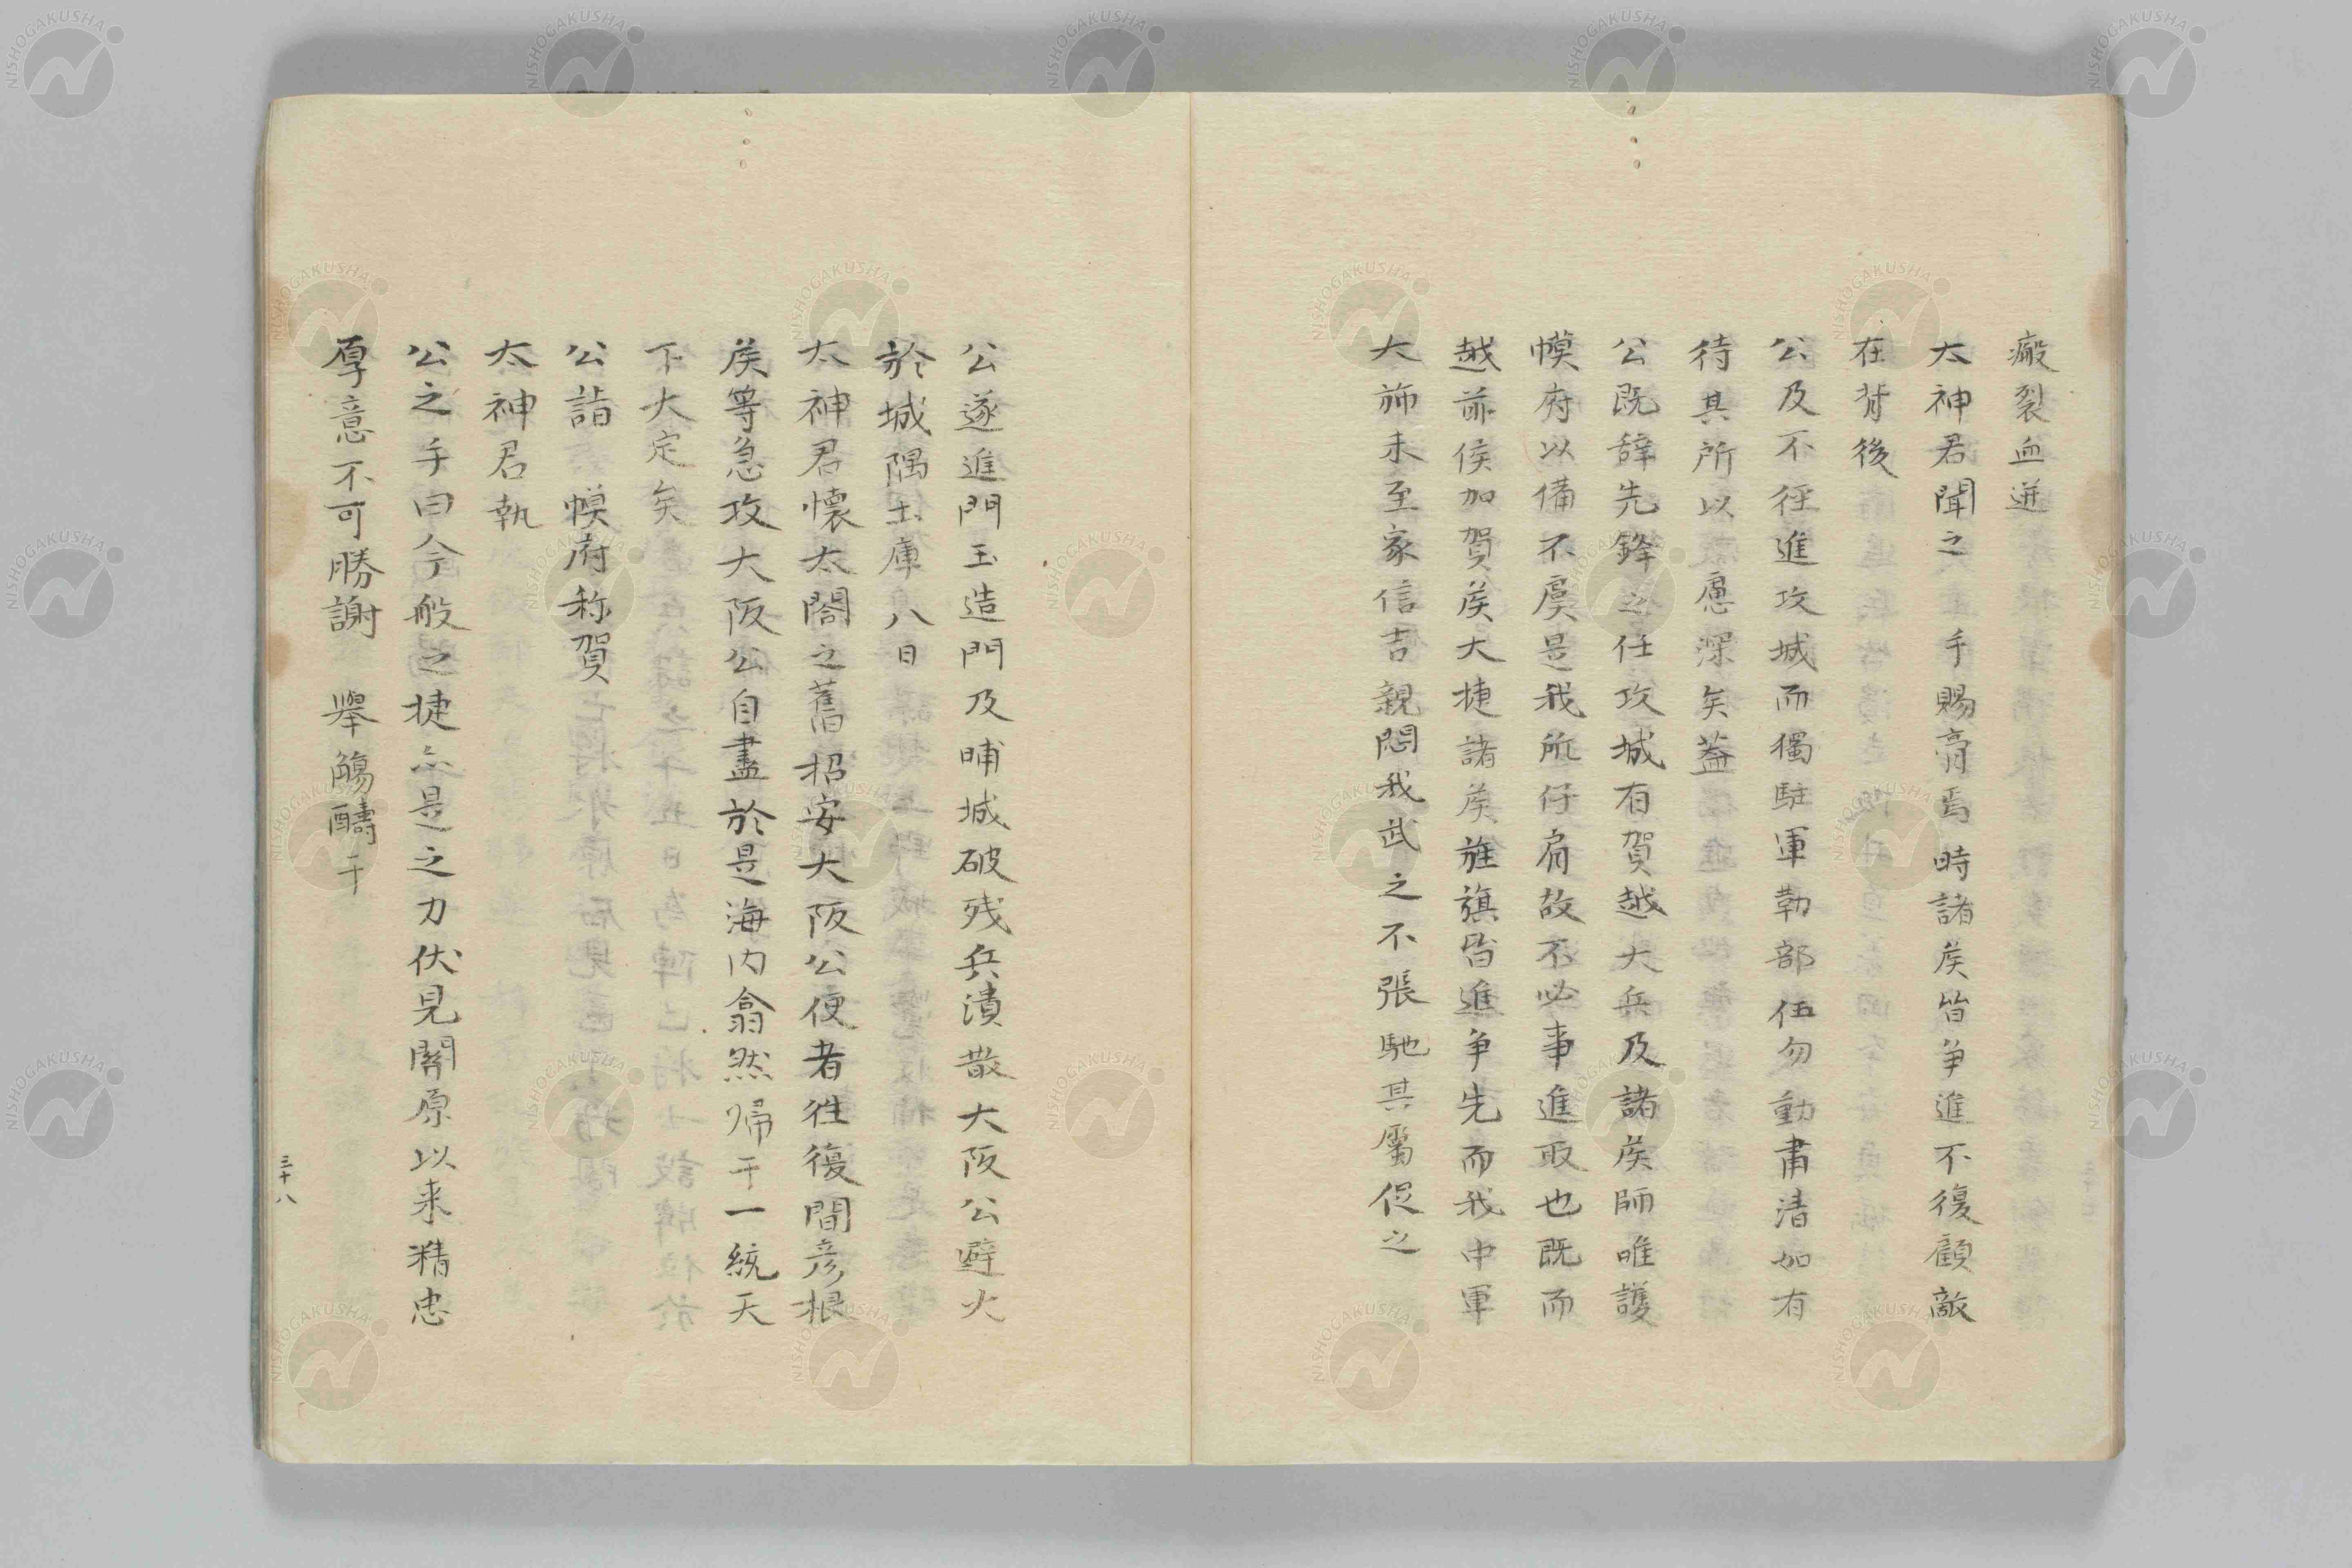 瘢裂血迸
太神君聞之 手賜膏焉時諸矦皆争進不復顧敵
在背後
公及不徑進攻城而獨駐軍勒部伍勿動肅清如有
待其所以慮深矣蓋
公既辞先鋒之任攻城有賀越大兵及諸矦師唯護
幙府以備不虞是我所仔肩故不必事進取也既而
越前侯加賀矦大捷諸矦旌旗皆進争先而我中軍
大斾未至家信吉親悶我武之不張馳其屬促之
公遂進門玉造門及晡城破残兵潰散大阪公避火
於城隅土庫八日
太神君懷太閤之舊招安大阪公使者徃復間彦根
矦等急攻大阪公自盡於是海内翕然帰于一統天
下大定矣
公詣 幙府称賀
太神君執
公之手曰今般之捷亦是之力伏見關原以来精忠
厚意不可勝謝 舉觴醻于
三十八
NISHOGAKUSHA